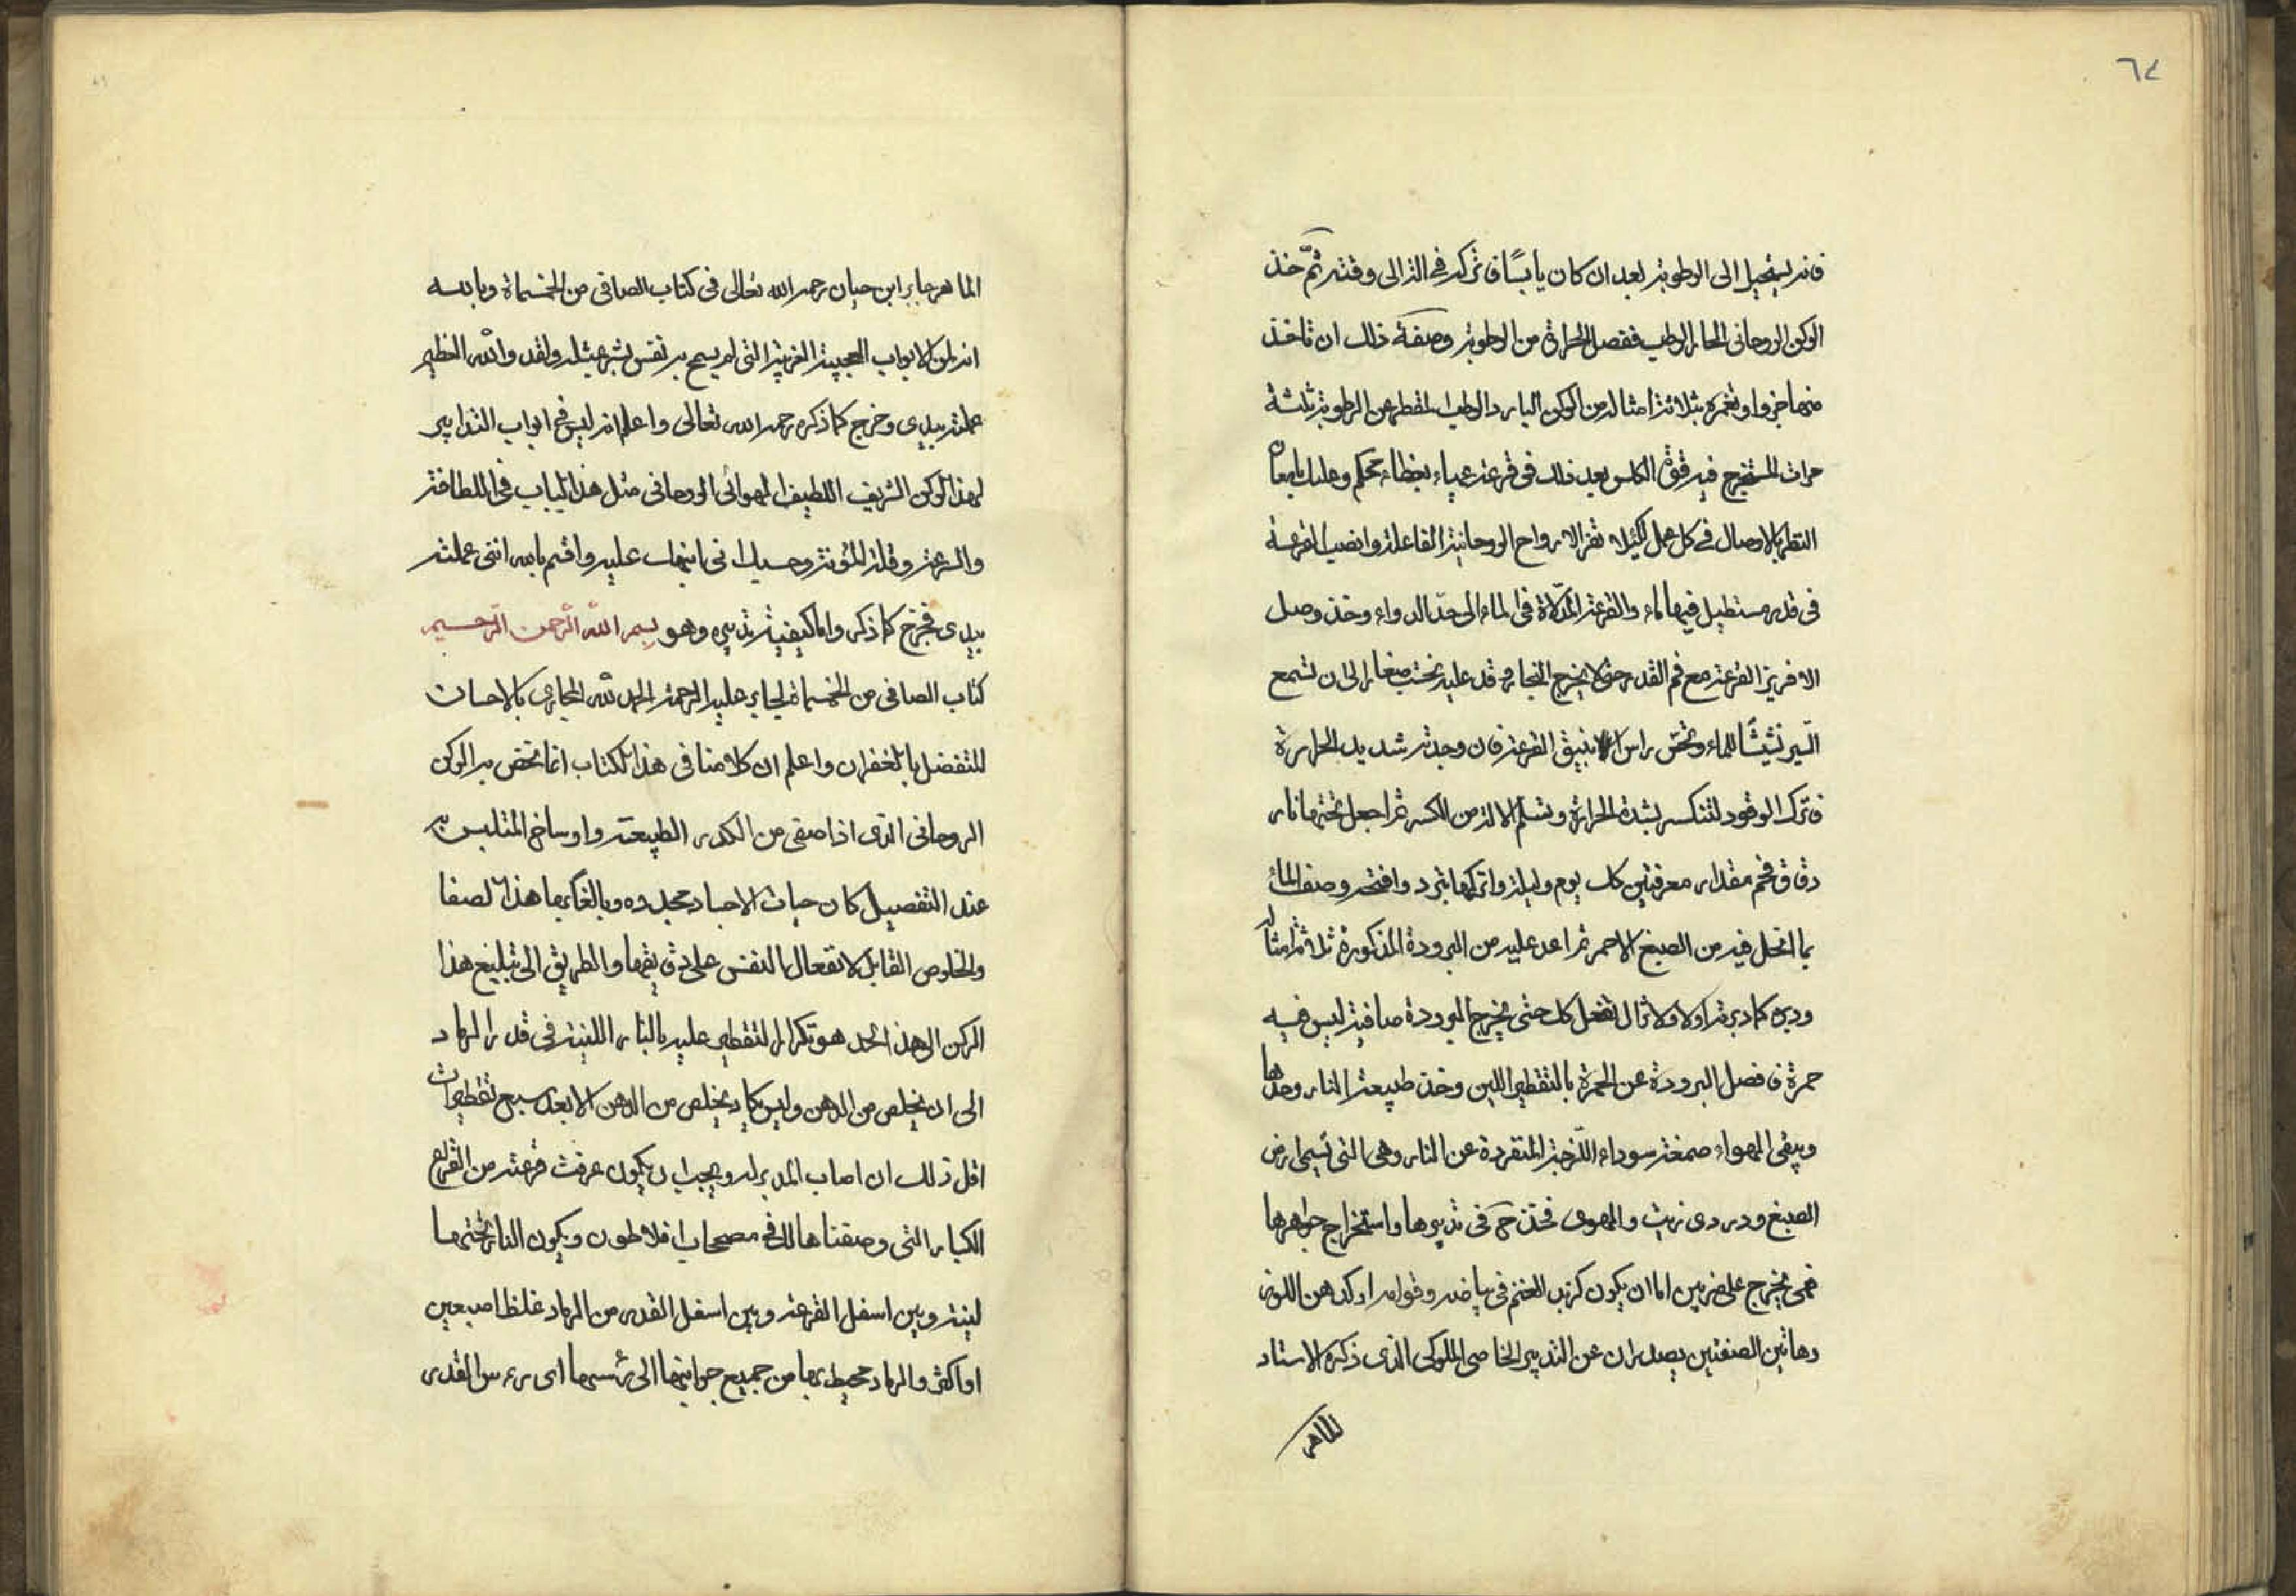 ٦٤
فانه يستحيل الى الرطوبة بعد ان كان يابسًا فاتركه في الندا الى وقته ثمّ خذ
الركن الروحانى الحار الرطب ففصل الحرارة من الرطوبة وصفة ذلك ان تاخذ
منها جزوا وتغمره بثلاثة امثاله من الركن البارد الرطب المقطر عن الرطوبة ثلثة
مرات المستخرج فيه قوة الكلس بعد ذلك في قرعة عمياء بغطاء محكم وعليك بايها
النظر بالاوصال في كل عمل لكيلا تفر الارواح الروحانية الفاعلة وانصب القرعة
في قدر مستطيل فيها ماء والقرعة المدلاة في الماء الى حدّ الدواء وخذ وصل
الافريز القرعة مع فم القدر حتى لا يخرج البخار وقد عليه بحتب صغار الى ان تسمع
السير نشيشًا للماء وتحس راس الانبيق القرعة فان وجدته شديد الحرارة
فاترك الوقود لتنكسر بشدة الحرارة وتسلم الالة من الكسر ثم اجعل تحتها نار
دقاق فحم مقدار معرفتين كل يوم وليلة واتركها تبرد وافتحه وصف الماء
بما انحل فيه من الصبغ الاحمر ثم اعد عليه من البرودة المذكورة ثلاثة امثاله
ودبره كما دبرته اولا ولا تزال تفعل كل حتى يخرج البرودة صافية ليس فيه
حمرة فافصل البرودة عن الحمرة بالتقطير اللين وخذ طبيعة النار وحدها
ويبقى الهواء صمغة سوداء اللزجة المتفردة عن النار وهى التى تسمى ارض
الصبغ ودردى زيت والهوى فخذ حـ فى تدبيرها واستخراج جواهرها
فهى يخرج على ضربين اما ان يكون كزبد الغنم فى بياضه وقوامه او كدهن اللوز
وهاتين الصنفتين يصدران عن التدبير الخاصى الملوكى الذى ذكره الاستاد
الماهر
الماهر جابر ابن حيان رحمه الله تعالى فى كتاب الصافى من الخمسماة وبالله
انه لمن الابواب العجيبة الغريبة التى لم يسمح بر نفس بشر بمثله ولقد والله العظيم
عملته بيدى وخرج كما ذكره رحمه الله تعالى واعلم انه ليس فى ابواب التدابير
لهذا الركن الشريف اللطيف الهوائى الروحانى مثل هذا الباب فى اللطافة
والسرعة وقلة المؤنة وحسبك انى نبهت عليه واقسم بالله اننى عملته
بيدى فخرج كما ذكر واما كيفية تدبيره وهو بسم الله الرحمن الرحيم
كتاب الصافى من الخمسماة لجابر عليه الرحمة الحمد لله المجازى بالاحسان
المتفضل بالغفران واعلم ان كلامنا فى هذا الكتاب انما نخص به الركن
الروحانى الذى اذا صفى من الكدر الطبيعة واوساخ المتلبس به
عند التفصيل كان حيات الاجساد محدده وبالغا بها هذا لصفا
والخلوص القابل لانفعال النفس على دقيقها والطريق الى تبليغ هذا
الركن الى هذا الحد هو تكرار التقطير عليه بالنار اللينة فى قدر الرماد
الى ان يخلص من الدهن وليس يكاد يخلص من الدهن الا بعد سبع تقطيرات
اقل ذلك ان اصاب المدبر له ويجب ان يكون عرفت قرعته من القراع
الكبار التى وصفناها لك فى مصححات افلاطون ويكون النار تحتها
لينة وبين اسفل القرعة وبين اسفل القدر من الرماد غلظ اصبعين
او اكثر والرماد محيط بها من جميع جوانبها الى رئسها اى رءس القدر